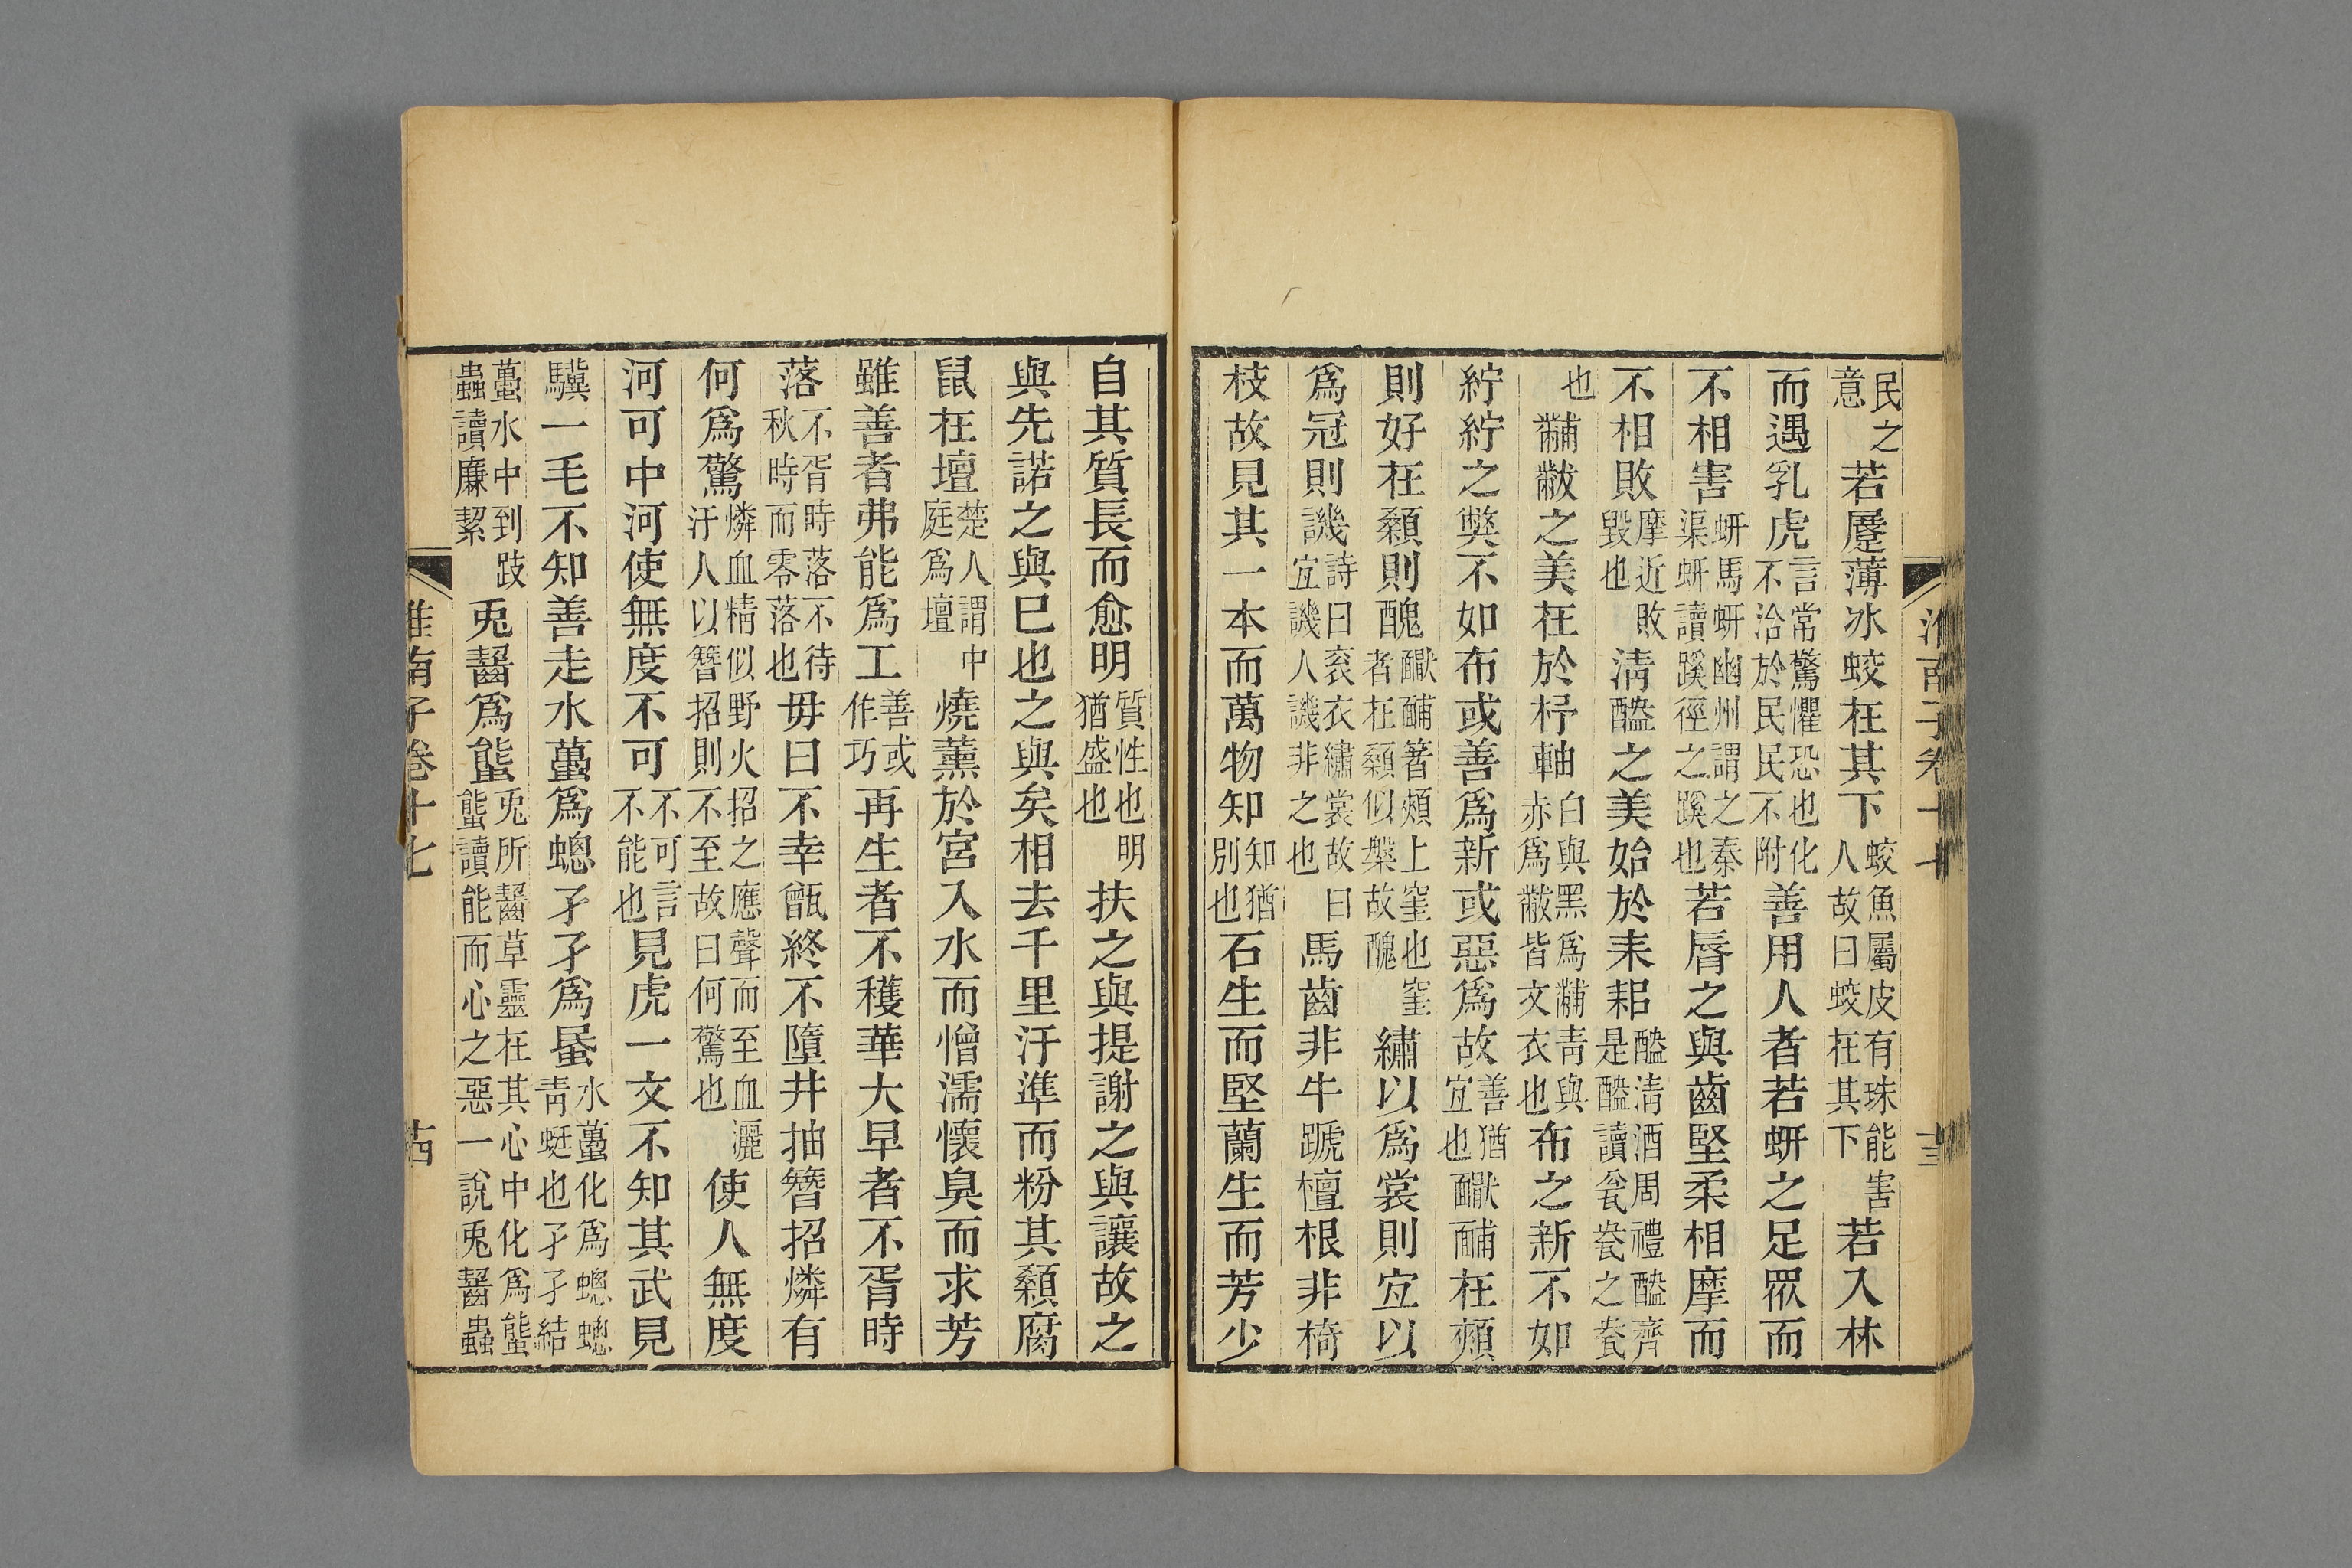 民之意若蹷薄冰蛟在其下蛟魚屬皮有珠能害人故曰蛟在其下若入林
而遇乳虎言常驚懼恐也化不洽於民民不附善用人者若蚈之足眾而
不相害蚈馬蚈幽州謂之秦渠蚈讀蹊徑之蹊也若脣之與齒堅柔相摩而
不相敗摩近敗毀也淸醠之美始於耒耜醠淸酒周禮醠齊是醠讀瓮瓷之瓷
也黼黻之美在於杼軸白與黑爲黼靑與赤爲黻皆文衣也布之新不如
紵紵之獘不如布或善爲新或惡爲故善猶宜也𪒠酺在頰
則好在顙則醜𪒠酺箸頰上窐也窐者在顙似槃故醜繡以爲裳則宜以
爲冠則譏詩曰衮衣繡裳故曰宜譏人譏非之也馬齒非牛蹏檀根非椅
枝故見其一本而萬物知知猶別也石生而堅蘭生而芳少
自其質長而愈明質性也明猶盛也扶之與提謝之與讓故之
與先諾之與巳也之與矣相去千里汙準而粉其顙腐
鼠在壇楚人謂中庭爲壇燒薰於宮入水而憎濡懷臭而求芳
雖善者弗能爲工善或作巧再生者不穫華大早者不胥時
落不胥時落不待秋時而零落也毋曰不幸甑終不墮井抽簪招燐有
何爲驚燐血精似野火招之應聲而至血灑汙人以簪招則不至故曰何驚也使人無度
河可中河使無度不可不可言不能也見虎一文不知其武見
驥一毛不知善走水蠆爲蟌孑孑爲䖟水蠆化爲蟌蟌靑蜓也孑孑結
蠆水中到跂蟲讀廉絜兎齧爲螚兎所齧草靈在其心中化爲螚螚讀能而心之惡一說兎齧蟲
淮南子卷十七
淮南子卷十七